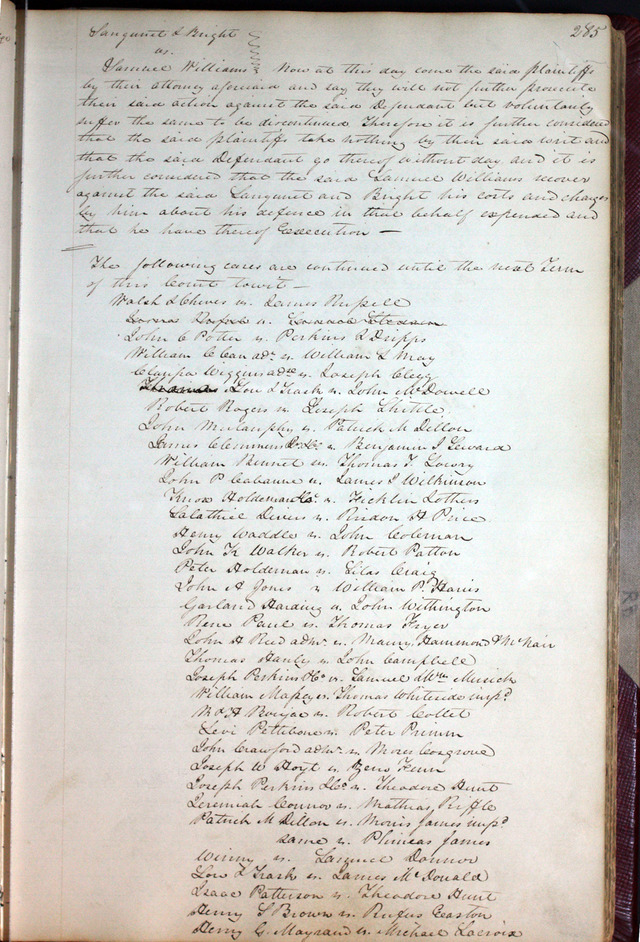 285
Sanguinet & Bright
vs.
Samuel Williams Now at this day come the said plaintiffs
by their attorney aforesaid and say they will not further prosecute
their said action against the said Defendant but voluntarily
suffer the same to be discontinued Therefore it is further considered
that the said plaintiffs take nothing by their said writ and
that the said Defendant go thereof without day and it is
further considered that the said Samuel Williams recover
against the said Sanguinet and Bright his costs and charges
by him about his defence in that behalf expended and
that he have thereof Execution —
The following cases are continued until the next Term
of this Court towit —
Walsh & Chives vs. James Russell
vs.
John C Potter vs. Perkins & Dripps
William C Carr adr. vs. William S May
Wiggins vs. Joseph Clegg
Trask vs. John McDowell
Robert Rogers vs. Joseph
John Mulanphy vs. Patrick M Dillon
James Clemmens Jr. & Co vs. Benjamin J Seward
William Bennet vs. Thomas F Lowry
John P Cabanne vs. James S Wilkinson
Knox Holdeman & Co. vs. Ficklin Lothers
Salathiel Divers vs. Rixdon H Price
Henry Waddle vs. John Coleman
John K Walker vs. Robert Patton
Peter Holdeman vs. Silas Craig
John A Jones vs William P. Harris
Garland Harding vs. John Withington
Rene Paul vs. Thomas Fryer
John H Reed admr. vs. Maury, Hammond & McNair
Thomas Hanly vs. John Campbell
Joseph Perkins & Co vs. Samuel & Wm Musick
William Massey vs. Thomas Whiteside imp.d
vs. Robert Collet
Levi Pettibone vs. Peter Primm
John Crawford admr. vs Moses Cosgrove
Joseph W Hoyt vs. Zeno Fenn
Joseph Perkins & Co. vs. Theodore Hunt
Jeremiah Connor vs. Mathias, Riffle
Patrick M Dillon vs. Morris James imp.d
same vs. Phineas James
Winny vs. Laurence Donnor
Trask vs. James McDonald
Isaac Patterson vs. Theodore Hunt
Henry S Brown vs. Rufus Easton
Henry G. Maynard vs. Michael Lacroix